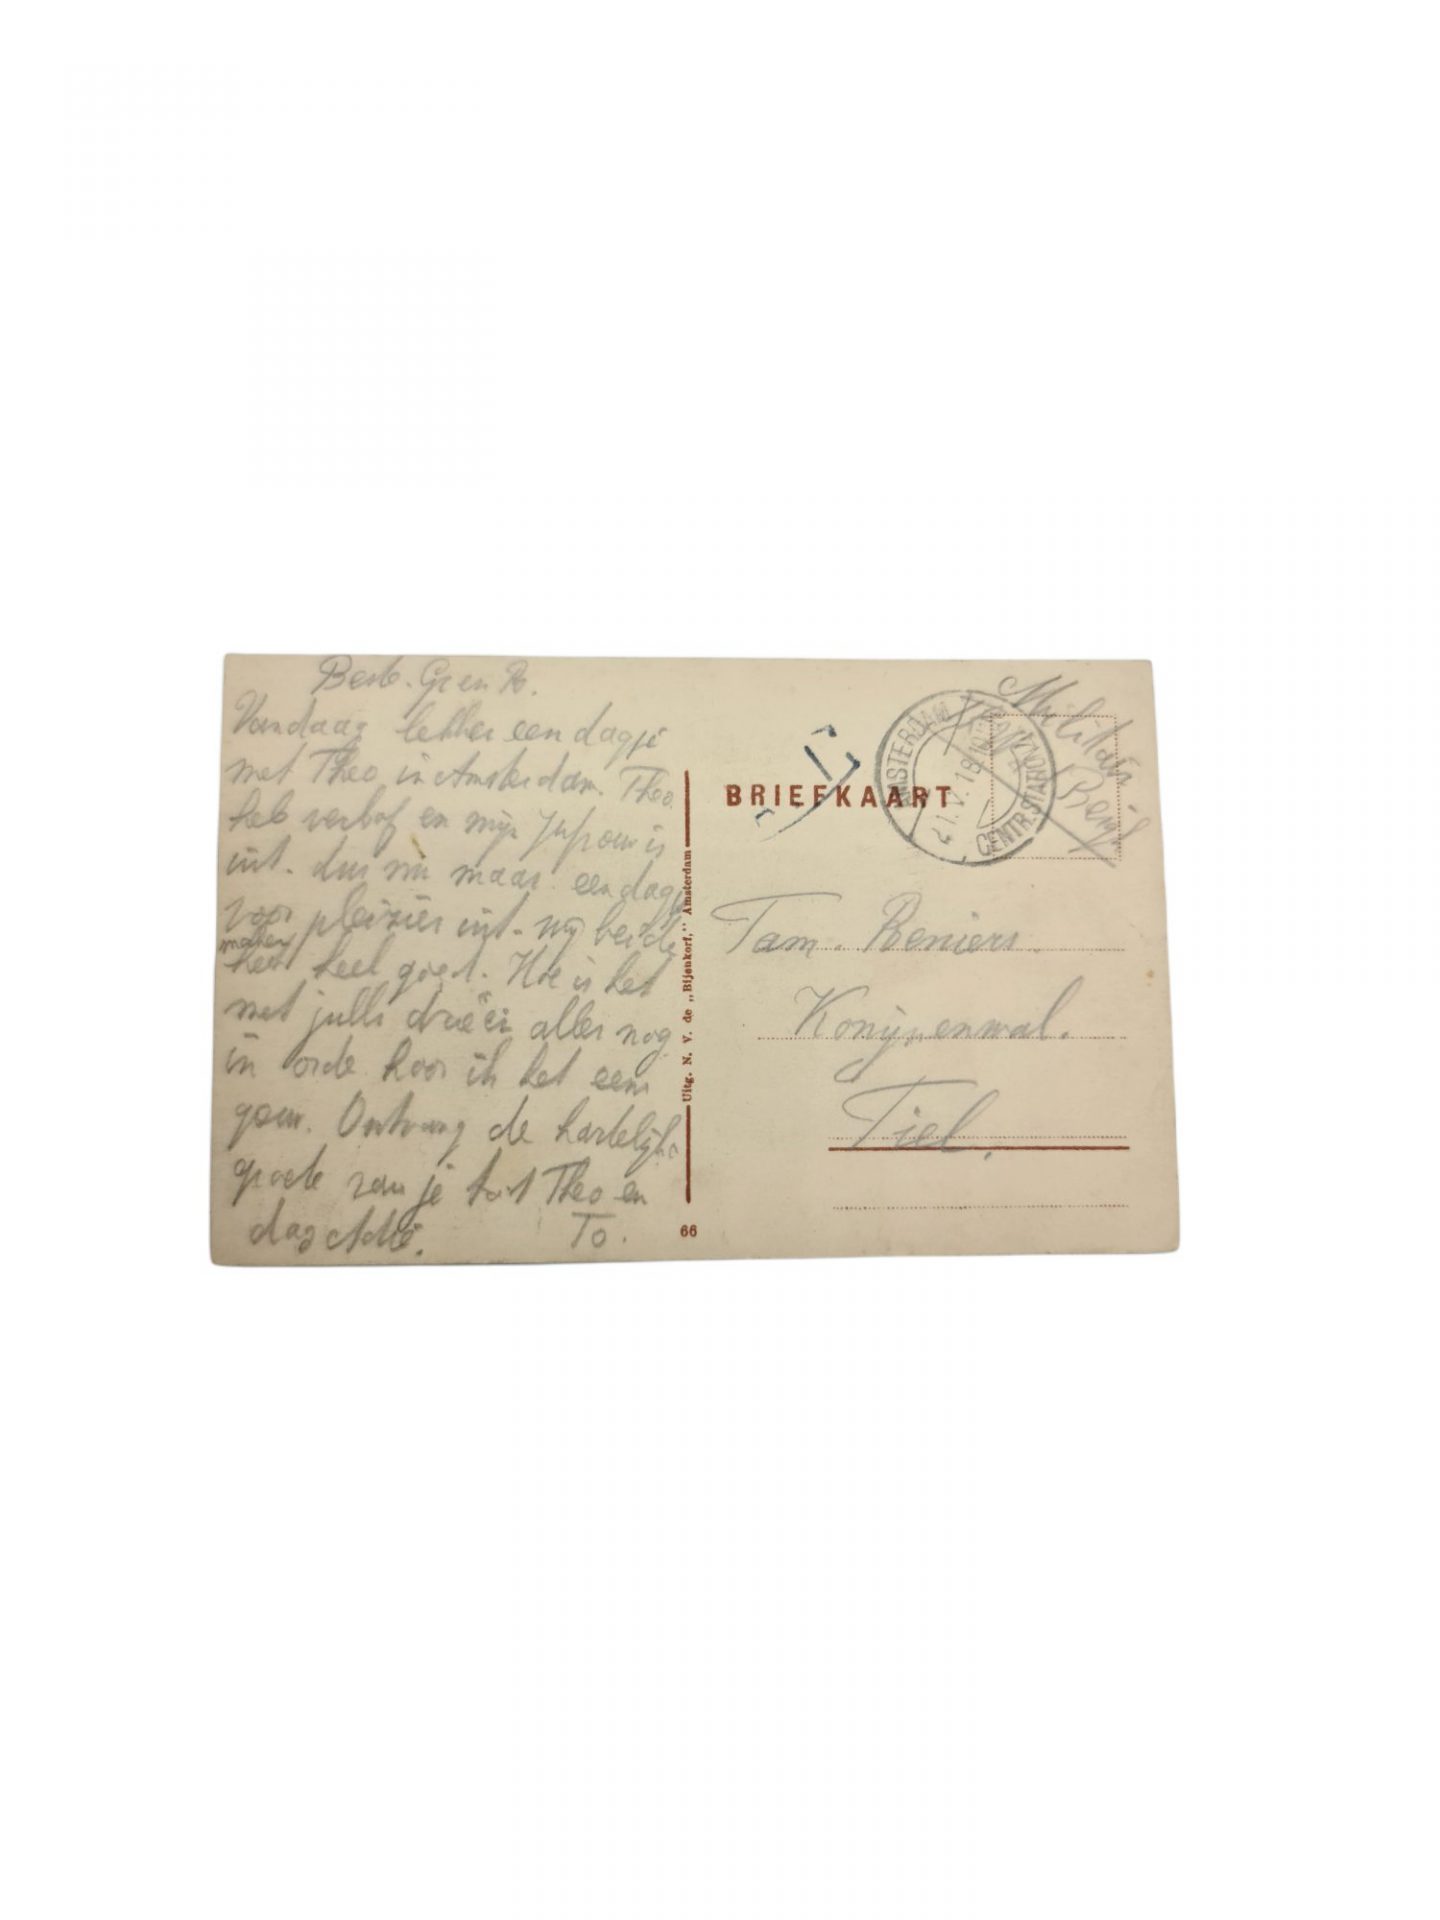 Beste. G. en B.
Vandaag lekker een dagje
met Theo in Amsterdam. Theo
heb verlof en mijn Jufrouw is
uit. dus nu maar een dagje
voor pleizier uit. wij beide
maken
het heel goed. Hoe is het
met julli drieën alles nog
in orde hoor ik het eens
gouw. Ontvang de hartelijke
groete van je Theo en
dag To.
Uitg. N. V. de „Bijenkorf," Amsterdam
66
BRIEFKAART
T
AMSTERDAM
CENTR. STATION
21.V.18
Militair
Fam. Reniers.
Konijnenwal.
Tiel.